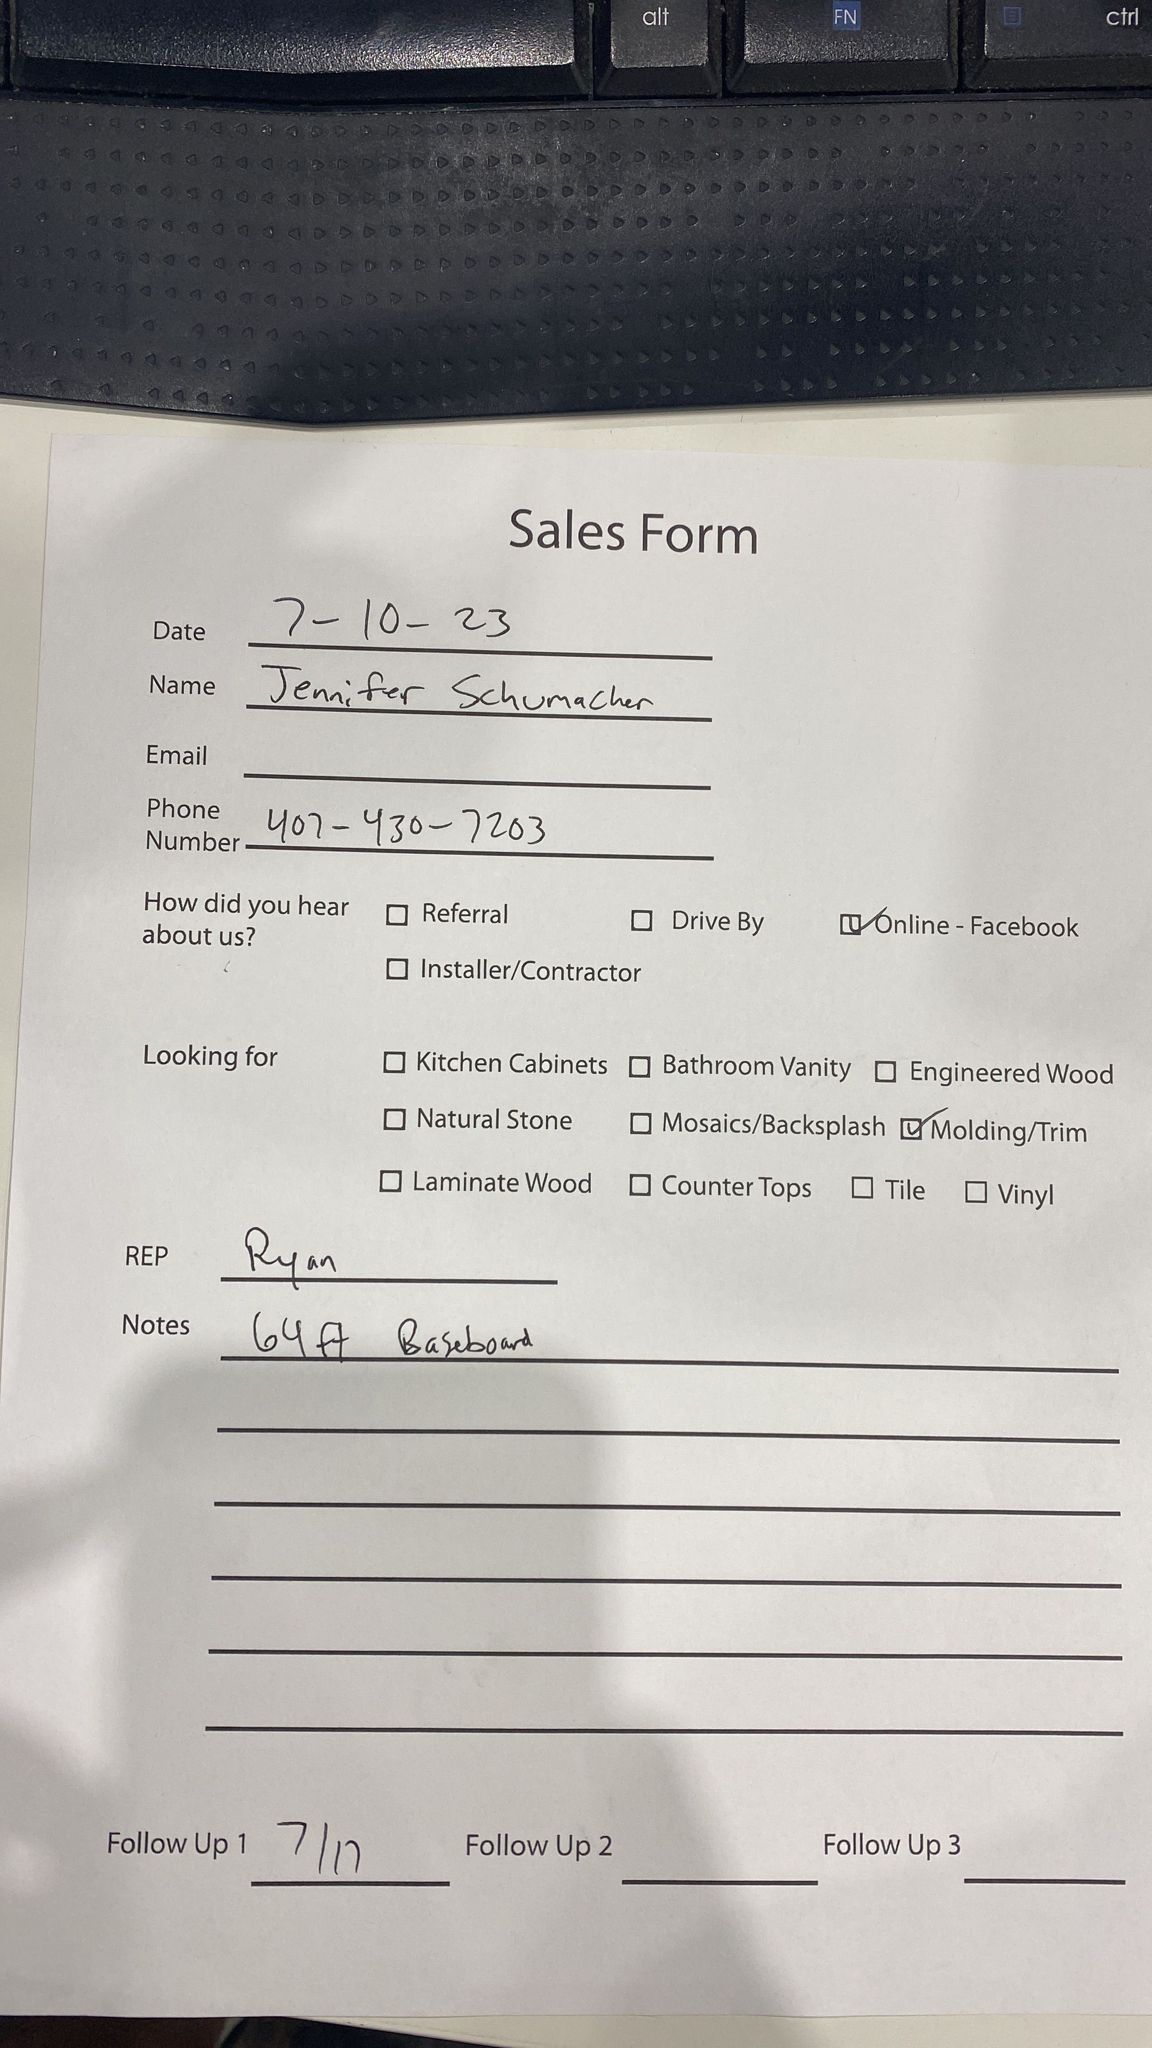 alt FN ctrl
Sales Form
Date 7-10-23
Name Jennifer Schumacher
Email
Phone
Number 407-430-7203
How did you hear
about us?
☐ Referral ☐ Drive By ☑ Online - Facebook
☐ Installer/Contractor
Looking for ☐ Kitchen Cabinets ☐ Bathroom Vanity ☐ Engineered Wood
☐ Natural Stone ☐ Mosaics/Backsplash ☑ Molding/Trim
☐ Laminate Wood ☐ Counter Tops ☐ Tile ☐ Vinyl
REP Ryan
Notes 64 ft Baseboard
Follow Up 1 7/17 Follow Up 2 Follow Up 3